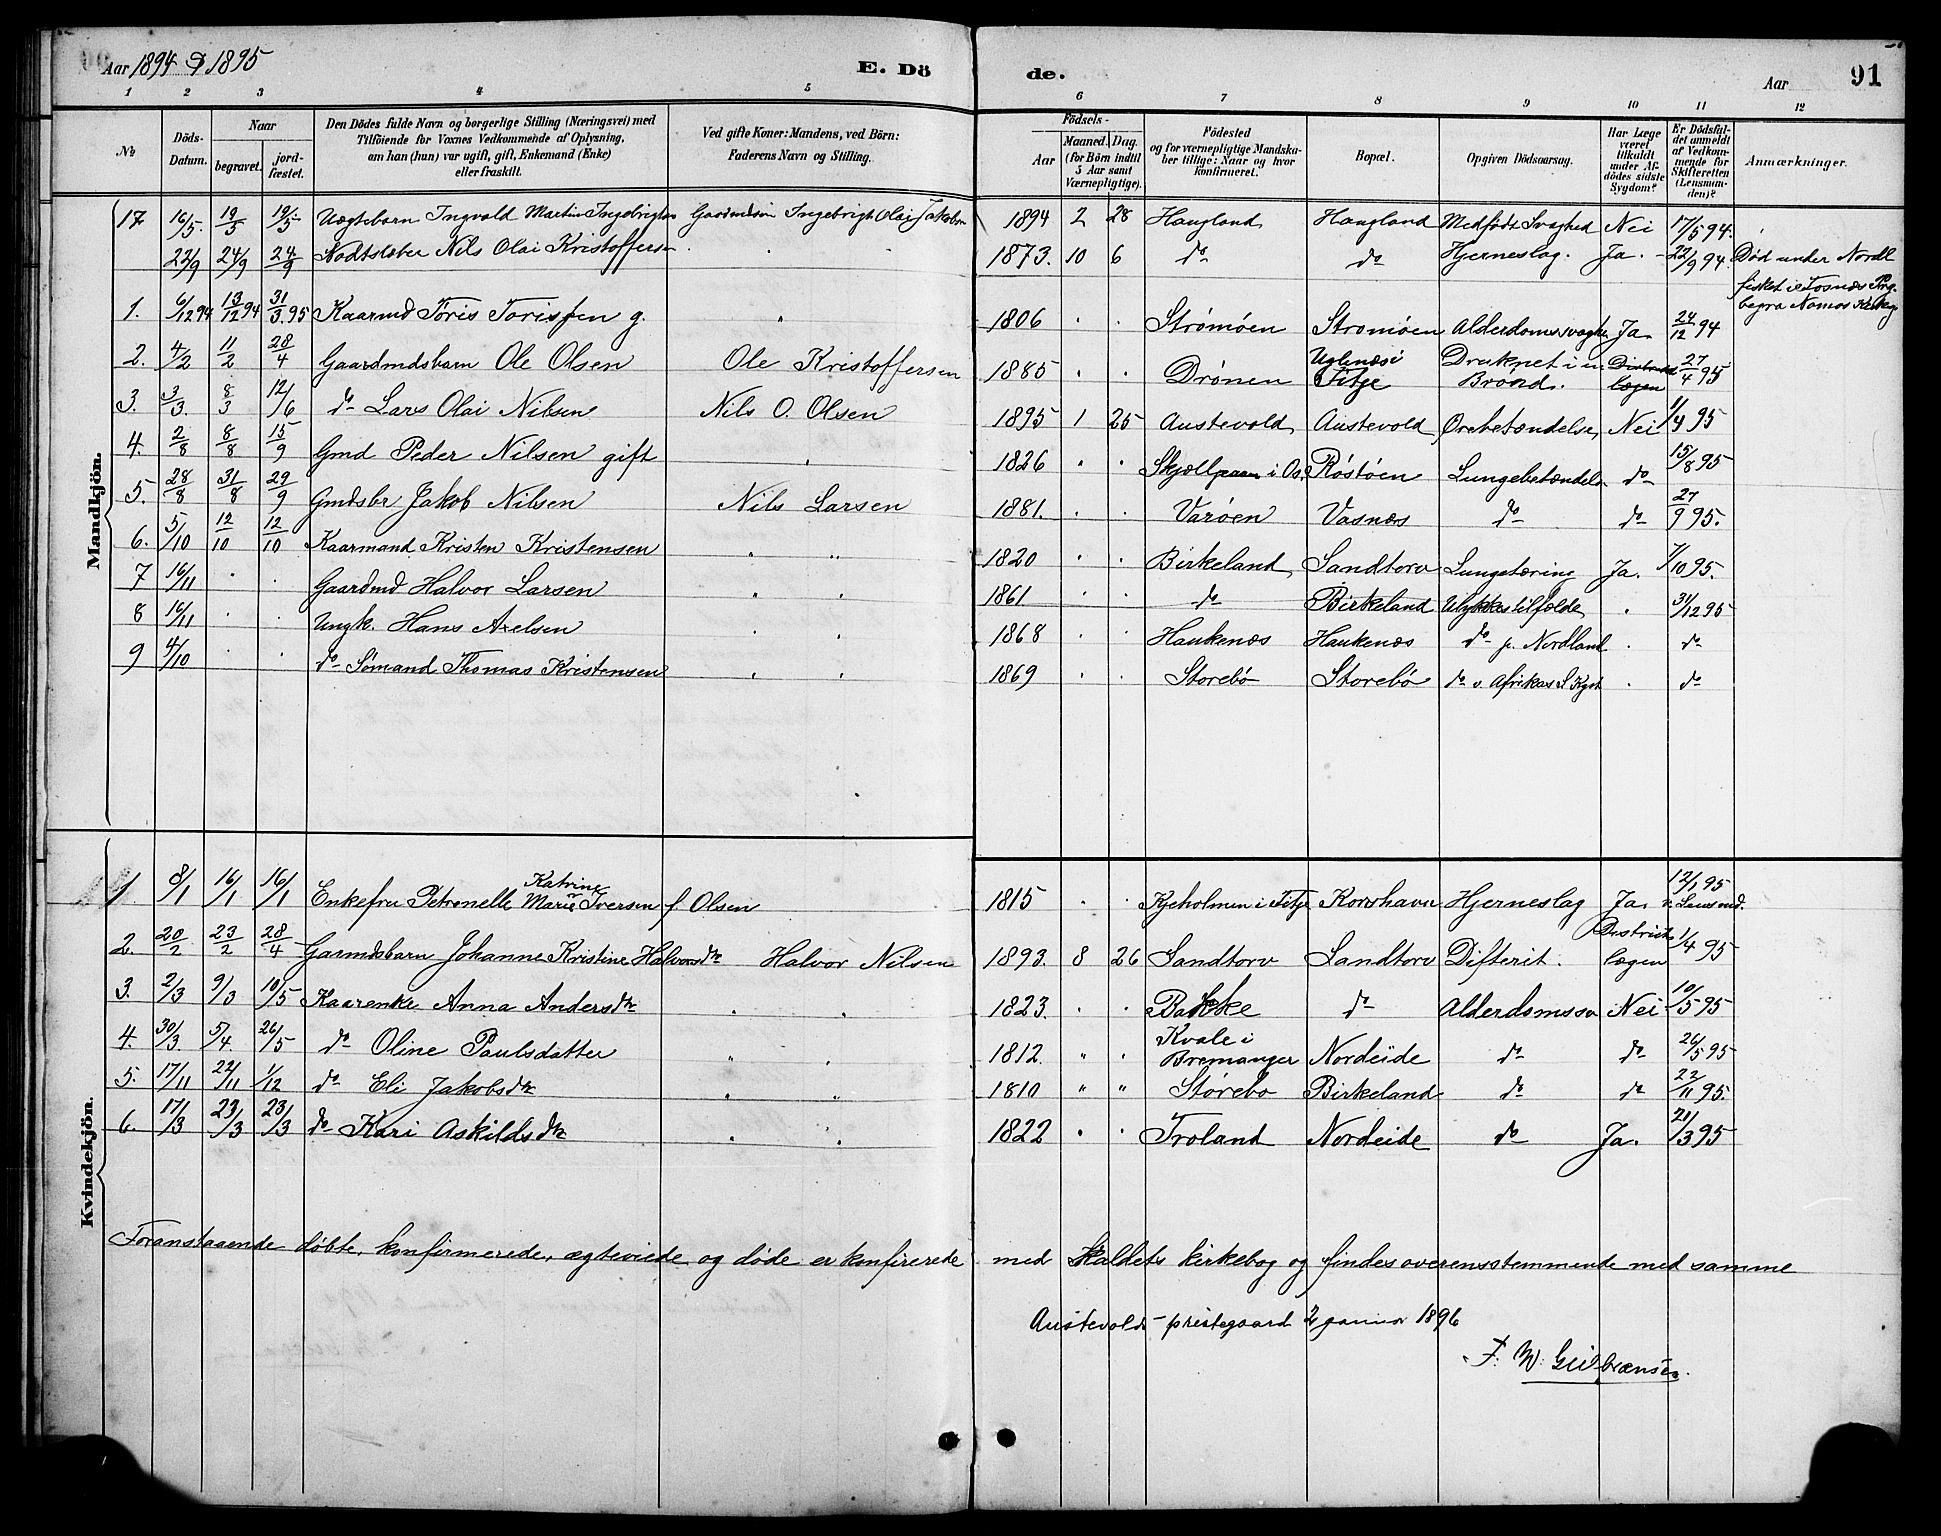 Aar 1894 & 1895 E. Dö de. Aar 91
1 2 3 4 5 6 7 8 9 10 11 12
No Döds-Datum. Naar begravet. jord-fæstet. Den Dödes fulde Navn og borgerlige Stilling (Næringsvei) med Tilföiende for Voxnes Vedkommende af Oplysning, om han (hun) var ugift, gift, Enkemand (Enke) eller fraskilt. Ved gifte Koner: Mandens, ved Börn: Faderens Navn og Stilling. Födsels- Aar Maaned. Dag. (for Börn indtil 5 Aar samt Værnepligtige). Födested og for værnepligtige Mandskaber tillige: Naar og hvor konfirmeret. Bopæl. Opgiven Dödsaarsag. Har Læge været tilkaldt under Afdödes sidste Sygdom? Er Dödsfaldet anmeldt af Vedkommende for Skifteretten (Lensmanden)? Anmærkninger.
Mandkjön.
17 16/5 19/5 19/5 Uægtebarn Ingvald Martin Ingebrigtsen Gaardmdsön Ingebrigt Olai Jakobsen 1894 2 28 Haugland Haugland Medfödt Svaghed Nei 17/5 94.
22/9 24/9 24/9 Nils Olai Kristoffersen 1873. 10 6 do do Hjerneslag. Ja. 22/9 94. Död under Nordl
fisket i Fosnæs Prg.
begra Namos Kirkeg
1. 6/12 94 13/12 94 31/3 95 Kaarmd Töris Torissen g. " 1806 " " Strömöen Strömöen Alderdomssvaghe Ja. 24/12 94
2. 4/2 11/2 28/4 Gaardmdsbarn Ole Olsen Ole Kristoffersen 1885 " " Drönen Uglenæs i Fitje Druknet i en Brönd. Distrikts lægen 27/4 95
3. 3/3. 8/3 12/6 do Lars Olai Nilsen Nils O. Olsen 1895 1 25 Austevold Austevold Örebetændelse Nei 1/4 95
4. 2/8 8/8 15/9 Gmd Peder Nilsen gift " 1826 " " i Os. Röstöen Lungebetændels do 15/8 95
5. 28/8 31/8 29/9 Gmdsbr Jakob Nilsen Nils Larsen 1881. " " Varöen Vasnæs do do 27/9 95.
6. 5/10 12/10 12/10 Kaarmand Kristen Kristensen " " 1820 " " Birkeland Sandtorv Lungetæring Ja. 7/10 95.
7 16/11 " " Gaardmd Halvor Larsen " " 1861 " " do Birkeland Ulykkestilfælde " 31/12 95
8 16/11 " " Ungk. Hans Axelsen " " 1868 " " Haukenæs Haukenæs do p. Nordland " do
9 4/10 " " do Sömand Thomas Kristensen " " 1869 " " Storebö Storebö do v. Afrikas S Kyst " do
Kvindekjön.
1 8/1 16/1 16/1 Enkefru Petronelle Katrine Marie Iversen f. Olsen 1815 " " Kjeholmen i Fitje Korshavn Hjerneslag Ja. 12/1 95 v. Lensmd.
2. 20/2 23/2 28/4 Garmdsbarn Johanne Kristine Halvorsdtr Halvor Nilsen 1893. 8 26 Sandtorv Sandtorv Difterit. Distrikts lægen 1/4 95
3. 2/3 9/3 10/5 Kaarenke Anna Andersdtr " " 1823. " " Bakke do Alderdomssv Nei 10/5 95
4. 30/3. 5/4. 26/5 do Oline Paulsdatter " " 1812. " " Kvale i Bremanger Nordeide do do 26/5 95
5. 17/11 22/11 1/12 do Eli Jakobsdtr " " 1810 " " Störebo Birkeland do do 22/11 95.
6. 17/3 23/3 23/3 do Kari Askildsdtr " " 1822 " " Troland Nordeide do Ja. 21/3 95
Foranstaaende döbte, konfirmerede, ægteviede og döde er konfirerede med Kaldets kirkebog og findes overensstemmende med samme
Austevolds prestegaard 2 januar 1896
F. W. Gulbransen.